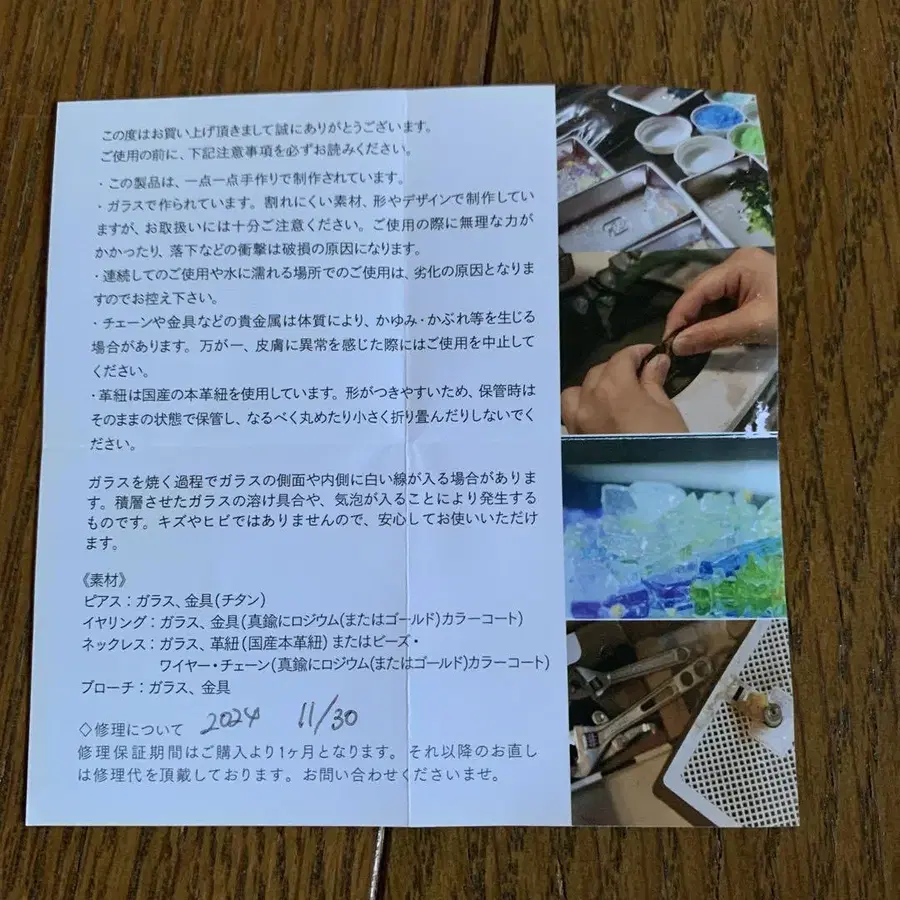 この度はお買い上げ頂きまして誠にありがとうございます。
ご使用の前に、下記注意事項を必ずお読みください。
・この製品は、一点一点手作りで制作されています。
・ガラスで作られています。割れにくい素材、形やデザインで制作してい
ますが、お取扱いには十分ご注意ください。ご使用の際に無理な力が
かかったり、落下などの衝撃は破損の原因になります。
・連続してのご使用や水に濡れる場所でのご使用は、劣化の原因となりま
すのでお控え下さい。
・チェーンや金具などの貴金属は体質により、かゆみ・かぶれ等を生じる
場合があります。万が一、皮膚に異常を感じた際にはご使用を中止して
ください。
・革紐は国産の本革紐を使用しています。形がつきやすいため、保管時は
そのままの状態で保管し、なるべく丸めたり小さく折り畳んだりしないでく
ださい。
ガラスを焼く過程でガラスの側面や内側に白い線が入る場合がありま
す。積層させたガラスの溶け具合や、気泡が入ることにより発生する
ものです。キズやヒビではありませんので、安心してお使いいただけ
ます。
《素材》
ピアス：ガラス、金具(チタン)
イヤリング：ガラス、金具(真鍮にロジウム(またはゴールド)カラーコート)
ネックレス：ガラス、革紐(国産本革紐)またはビーズ・
ワイヤー・チェーン(真鍮にロジウム(またはゴールド)カラーコート)
ブローチ：ガラス、金具
◇修理について 2024 11/30
修理保証期間はご購入より1ヶ月となります。それ以降のお直し
は修理代を頂戴しております。お問い合わせくださいませ。